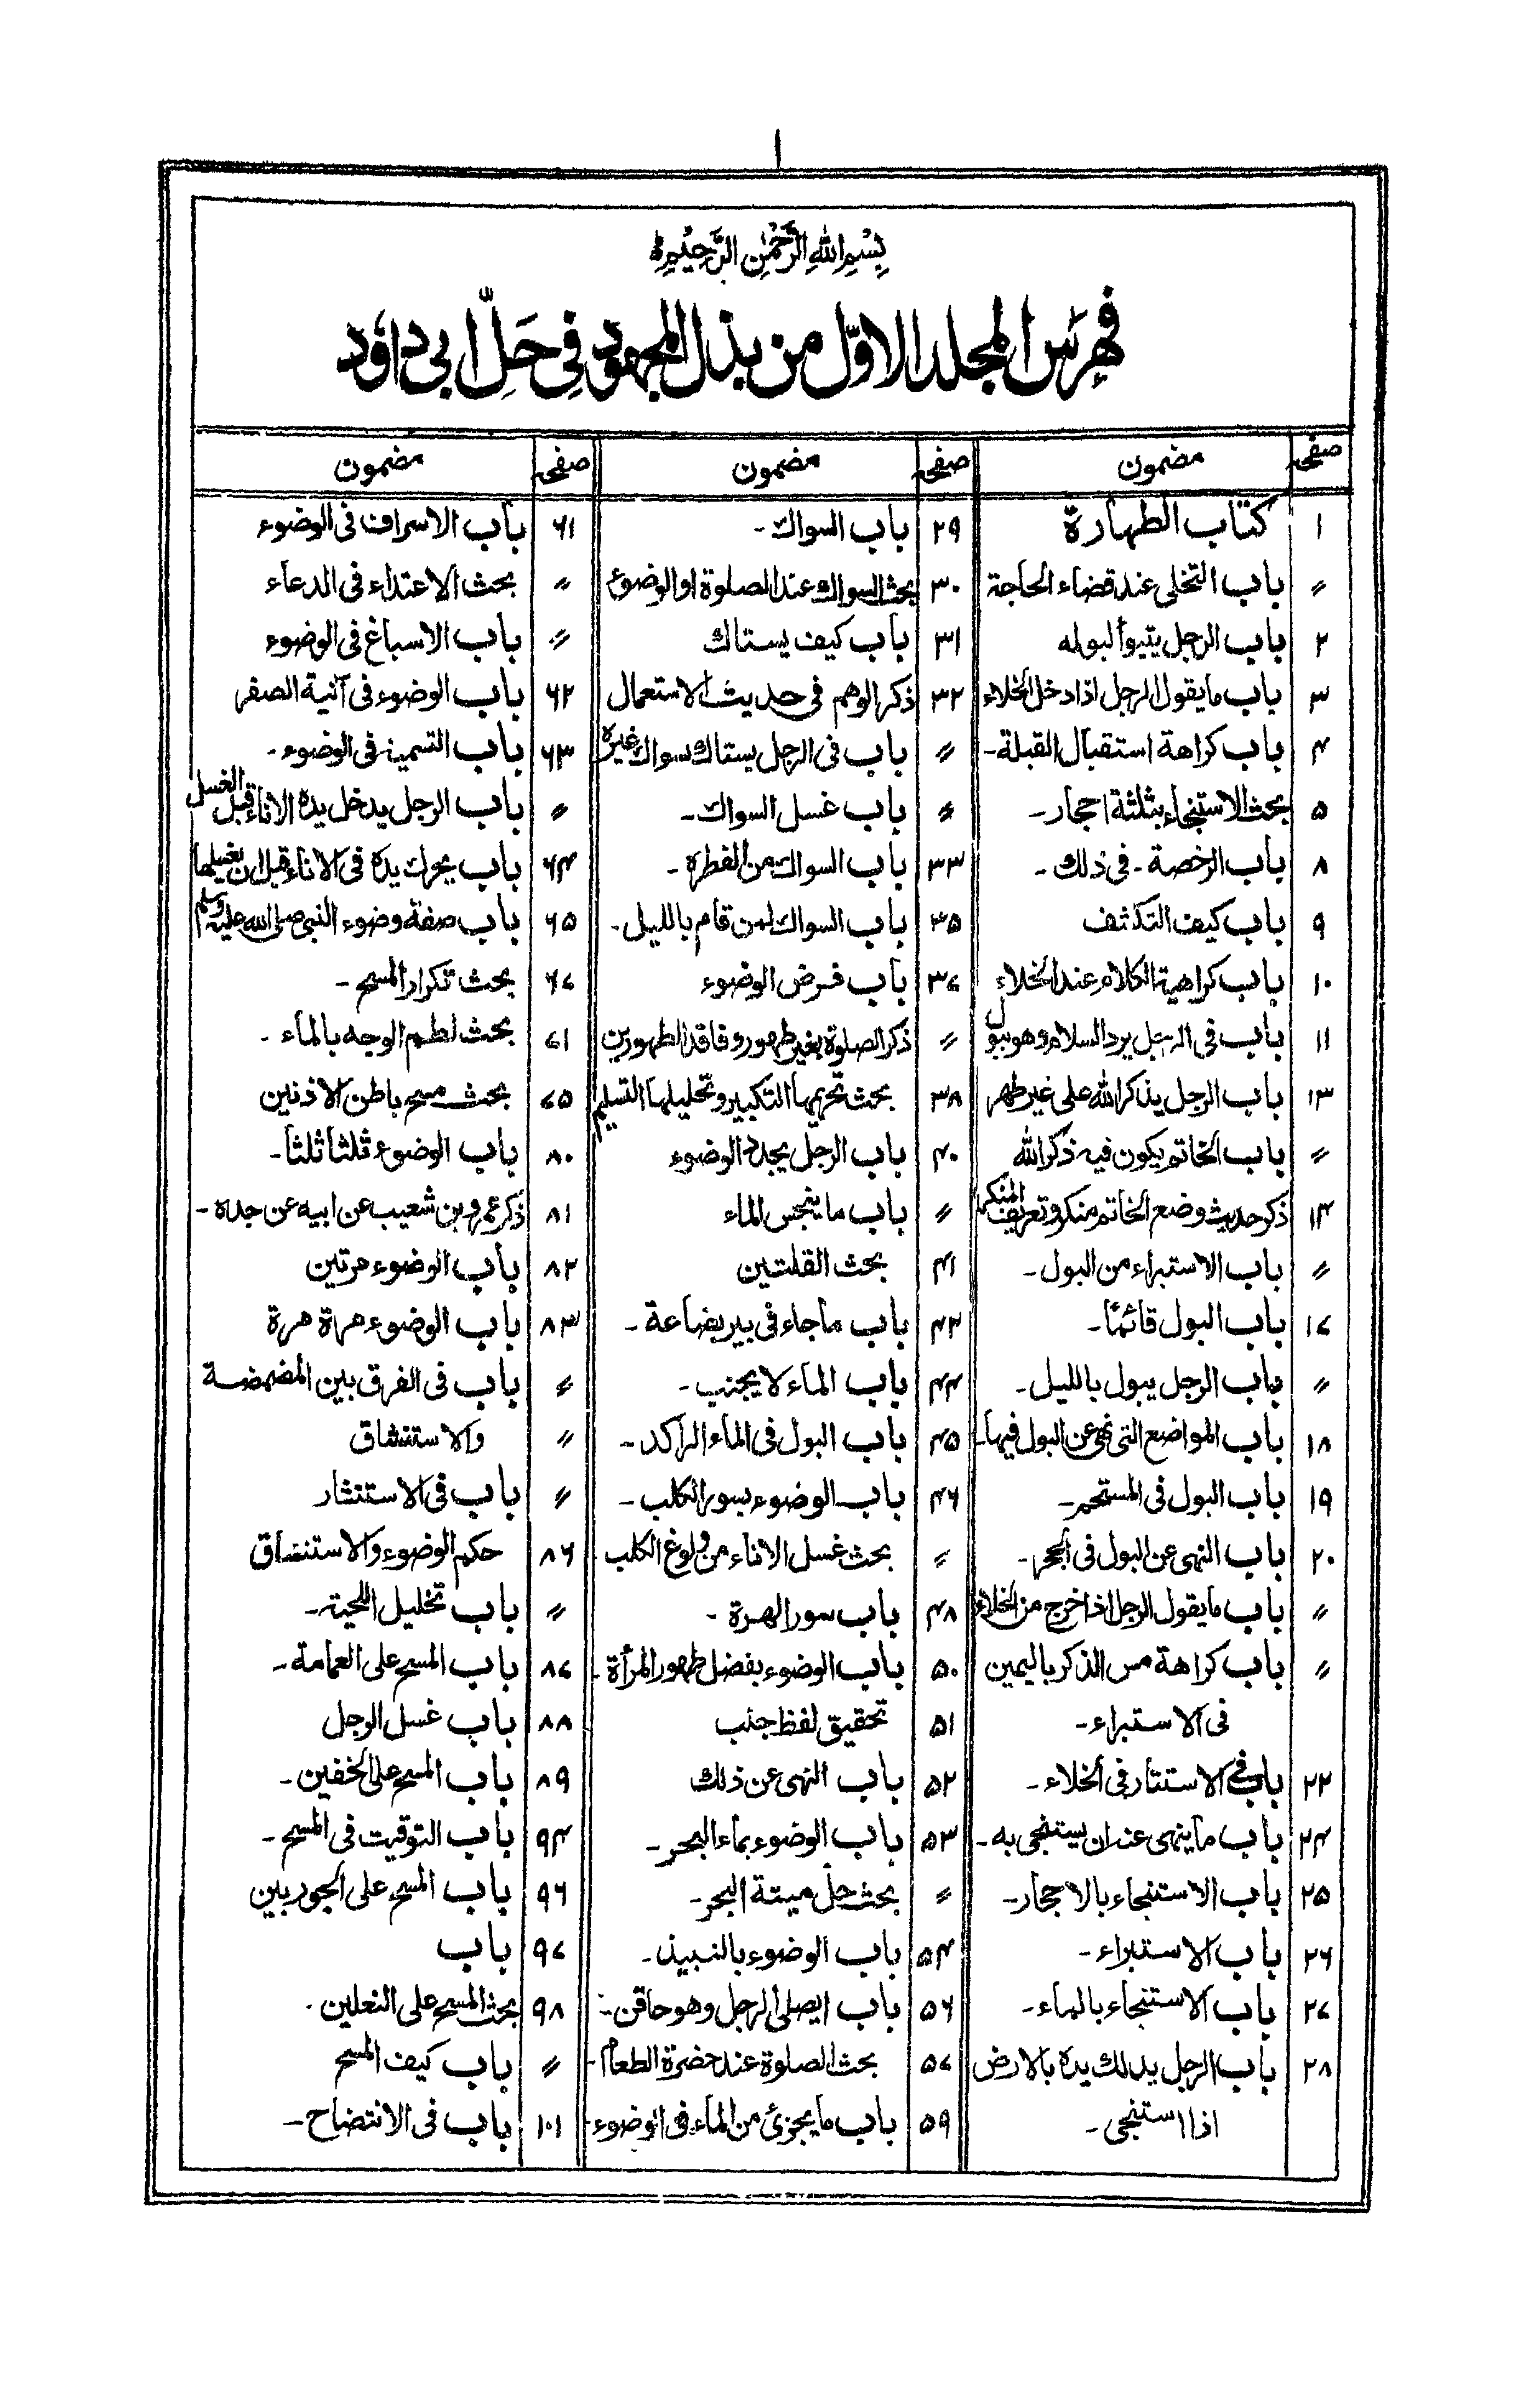 ١
بِسْمِ اللهِ الرَّحْمٰنِ الرَّحِيْمِ
فِهرَس المجلد الاوّل من بذل المجهود فِي حَلِّ ابي داؤد
صفحہ مضمون
۱ كتاب الطهارة
〃 باب التخلى عند قضاء الحاجة
۲ باب الرجل يتبوأ لبوله
۳ باب ما يقول الرجل اذا دخل الخلاء
۴ باب كراهة استقبال القبلة-
۵ بحث الاستنجاء بثلثة احجار-
۸ باب الرخصة - فى ذلك -
۹ باب كيف التكشف
۱۰ باب كراهية الكلام عند الخلاء
۱۱ باب فى الرجل يرد السلام وهو يبول
۱۳ باب الرجل يذكر الله على غير طهر
〃 باب الخاتم يكون فيه ذكر الله
۱۴ ذكر حديث وضع الخاتم منكر وتعريف المنكر
〃 باب الاستبراء من البول-
۱۷ باب البول قائمًا-
〃 باب الرجل يبول بالليل-
۱۸ باب المواضع التى نهى عن البول فيها-
۱۹ باب البول فى المستحم-
۲۰ باب النهى عن البول فى الجحر-
〃 باب ما يقول الرجل اذا خرج من الخلاء
〃 باب كراهة مس الذكر باليمين
فى الاستبراء-
۲۲ باب فى الاستتار فى الخلاء-
۲۴ باب ما ينهى عنه ان يستنجى به-
۲۵ باب الاستنجاء بالاحجار-
۲۶ باب الاستبراء-
۲۷ باب الاستنجاء بالماء-
۲۸ باب الرجل يدلك يده بالارض
اذا استنجى-
صفحہ مضمون
۲۹ باب السواك-
۳۰ بحث السواك عند الصلوة او الوضوء
۳۱ باب كيف يستاك
۳۲ ذكر الوهم فى حديث الاستعمال
〃 باب فى الرجل يستاك بسواك غيره
〃 باب غسل السواك-
۳۳ باب السواك من الفطرة-
۳۵ باب السواك لمن قام بالليل-
۳۷ باب فرض الوضوء
〃 ذكر الصلوة بغير طهور وفاقد الطهورين
۳۸ بحث تحريمها التكبير وتحليلها التسليم
۴۰ باب الرجل يجدد الوضوء
〃 باب ما ينجس الماء
۴۱ بحث القلتين
۴۲ باب ما جاء فى بير بضاعة-
۴۴ باب الماء لا يجنب-
۴۵ باب البول فى الماء الراكد-
۴۶ باب الوضوء بسور الكلب-
〃 بحث غسل الاناء من ولوغ الكلب
۴۸ باب سور الهرة -
۵۰ باب الوضوء بفضل طهور المرأة-
۵۱ تحقيق لفظ جنب
۵۲ باب النهى عن ذلك
۵۳ باب الوضوء بماء البحر-
〃 بحث حل ميتة البحر-
۵۴ باب الوضوء بالنبيذ-
۵۶ باب ايصلى الرجل وهو حاقن-
۵۷ بحث الصلوة عند حضرة الطعام-
۵۹ باب ما يجزئ من الماء فى الوضوء-
صفحہ مضمون
۶۱ باب الاسراف فى الوضوء
〃 بحث الاعتداء فى الدعاء
〃 باب الاسباغ فى الوضوء
۶۲ باب الوضوء فى آنية الصفر
۶۳ باب التسمية فى الوضوء-
〃 باب الرجل يدخل يده الاناء قبل الغسل
۶۴ باب يحرك يده فى الاناء قبل ان يغسلها
۶۵ باب صفة وضوء النبى صلى الله عليه وسلم
۶۷ بحث تكرار المسح-
۷۱ بحث لطم الوجه بالماء-
۷۵ بحث مسح باطن الاذنين
۸۰ باب الوضوء ثلثا ثلثا-
۸۱ ذكر عمرو بن شعيب عن ابيه عن جده-
۸۲ باب الوضوء مرتين
۸۳ باب الوضوء مرة مرة
〃 باب فى الفرق بين المضمضة
〃 والاستنشاق
〃 باب فى الاستنثار
۸۶ حكم الوضوء والاستنشاق
〃 باب تخليل اللحية-
۸۷ باب المسح على العمامة-
۸۸ باب غسل الرجل
۸۹ باب المسح على الخفين-
۹۴ باب التوقيت فى المسح-
۹۶ باب المسح على الجوربين
۹۷ باب
۹۸ بحث المسح على النعلين-
〃 باب كيف المسح
۱۰۱ باب فى الانتضاح-